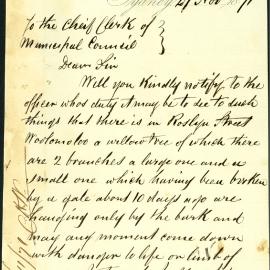 Sydney 21 Nov
To the Cheif Clerk of
Municipal Council
Dear Sir
Will you Kindly notify to the
officer whos duty it may be to see to such
things that there is in Roslyn Street
Wooloomoloo a willow tree of which there
are 2 branches a large one and a
small one which having been broken
by a gale about 10 days ago are
hanging only by the bark and
may any moment come down
with danger to life or limb of